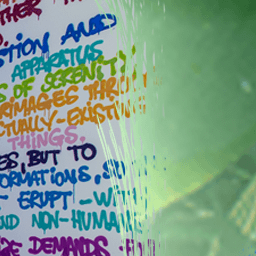 THER
STION AND
APPARATUS
S OF SERENITY
RIMAGES THRO
CTUALLY-EXISTING
THINGS.
ES, BUT TO
ORMATIONS, S
ERUPT - WI
ND NON-HUMAN
GE DEMANDS